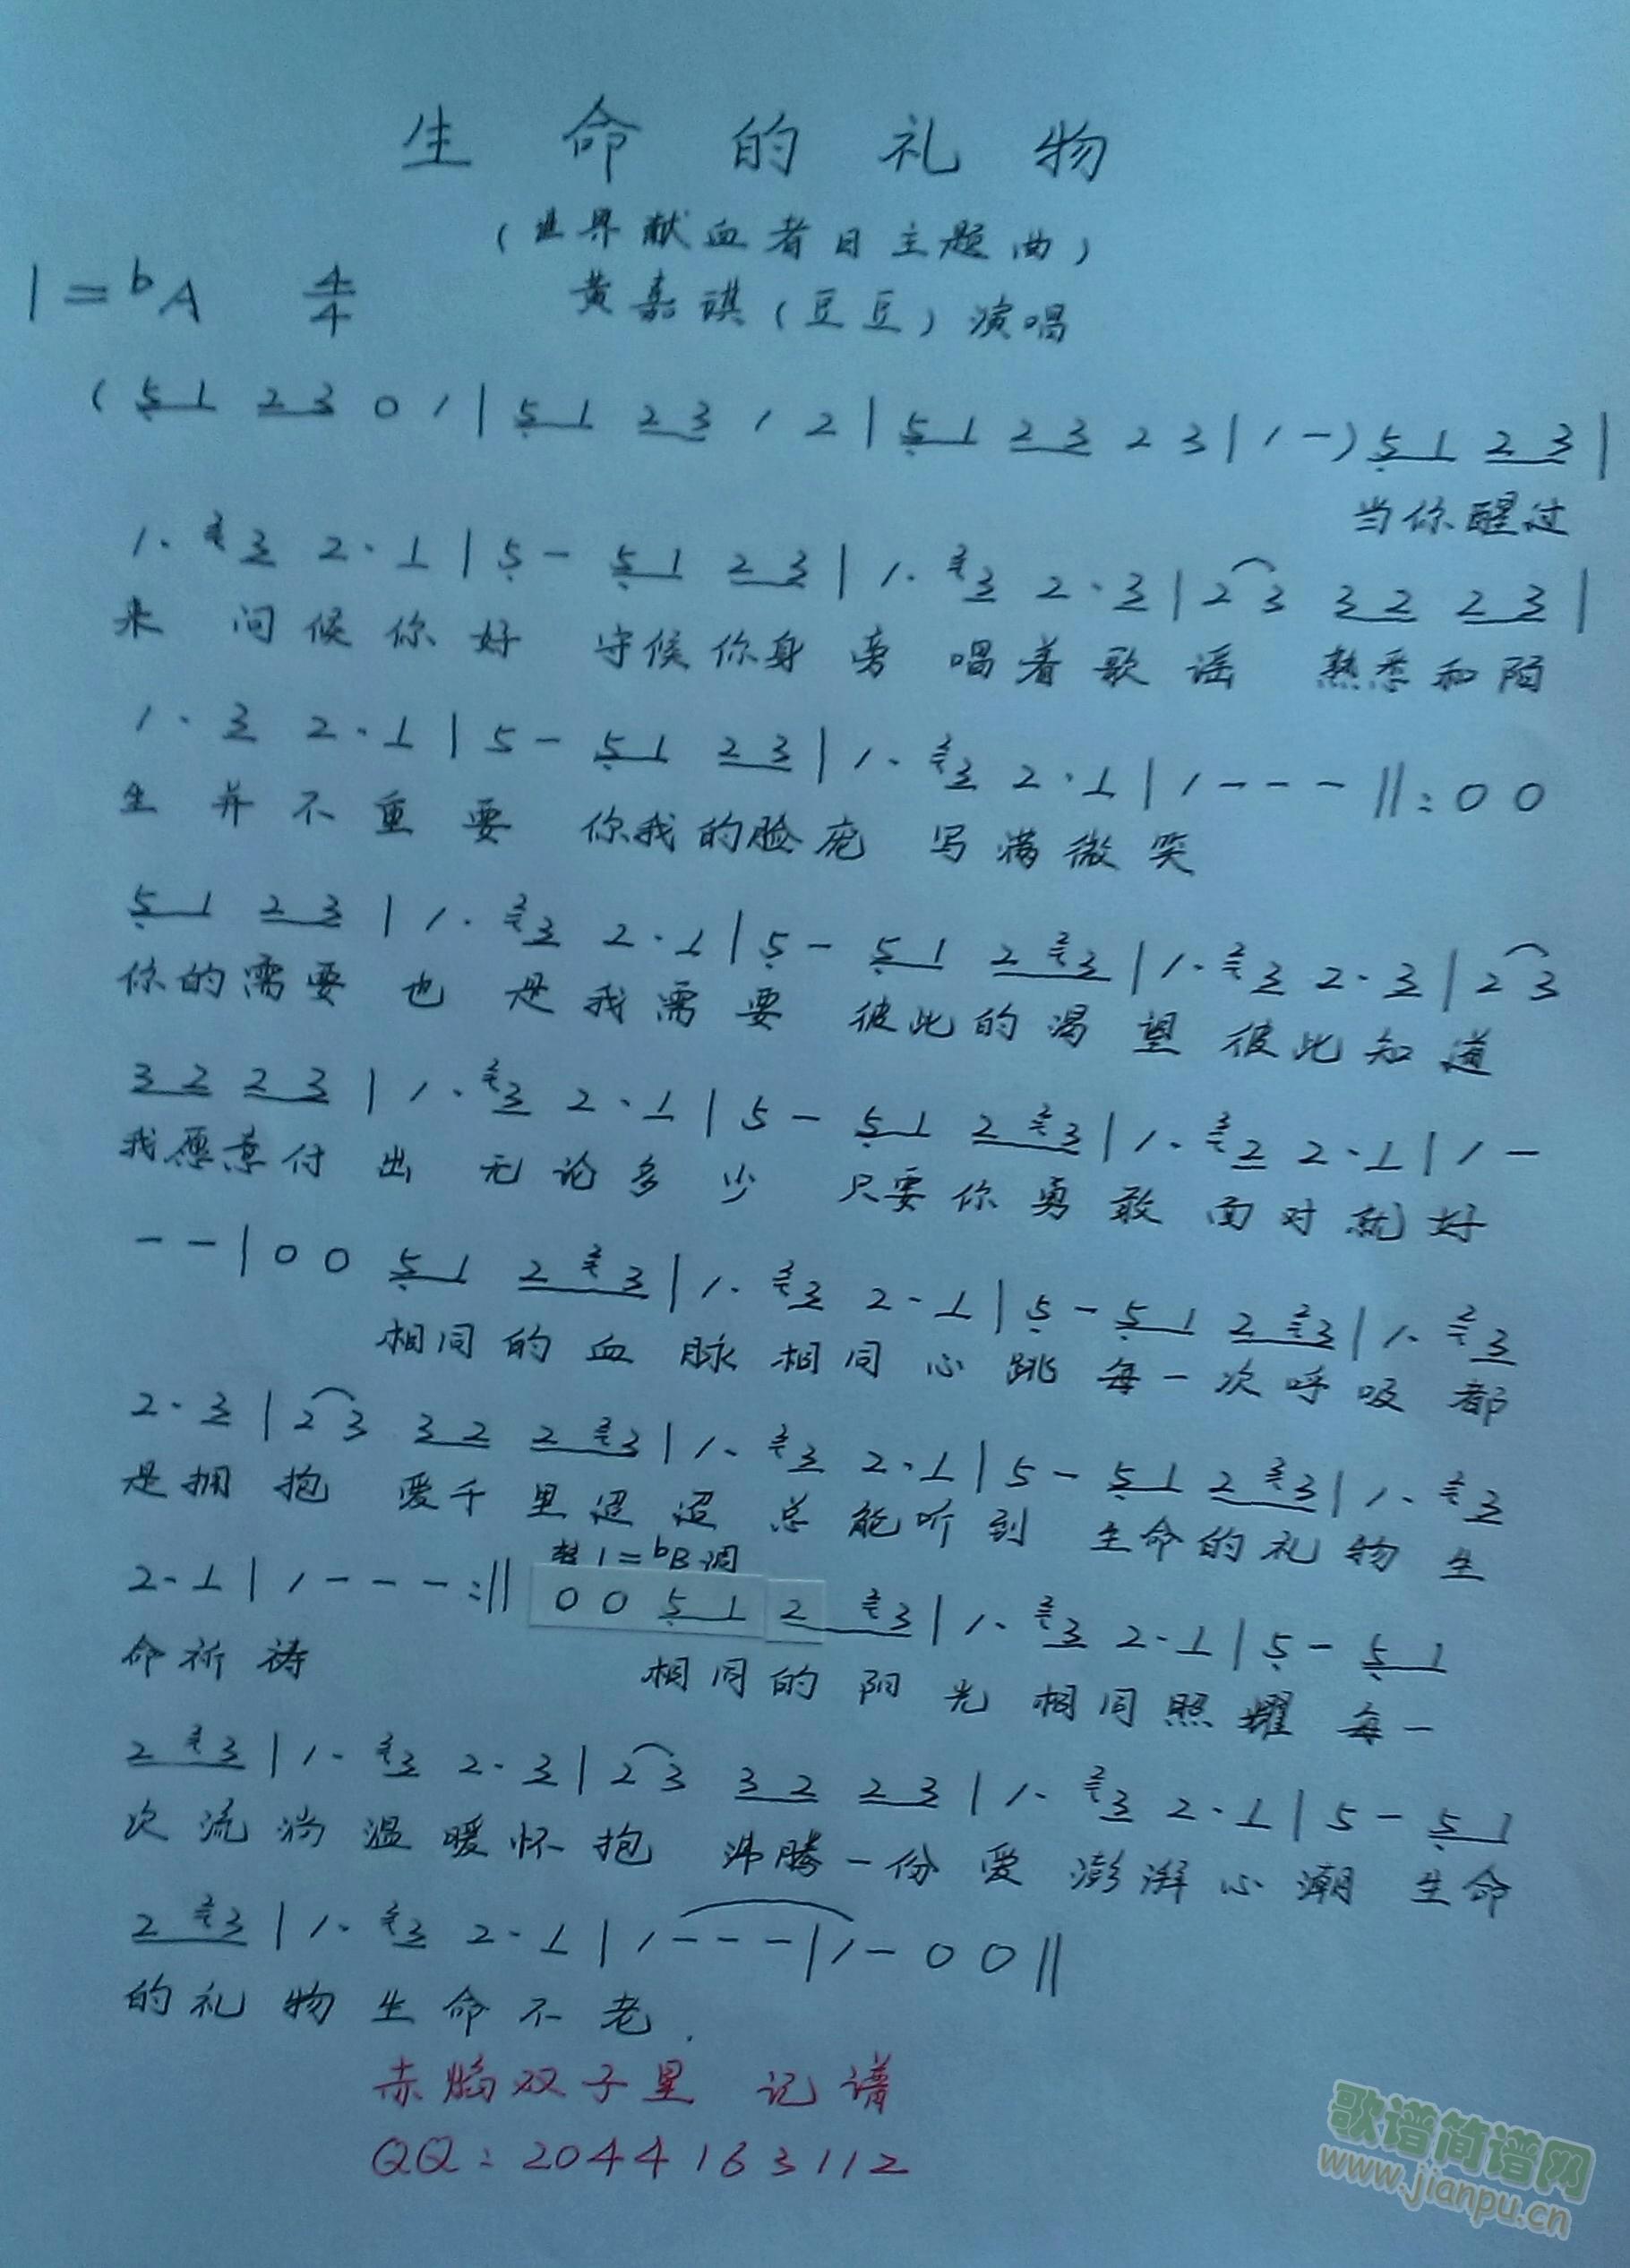 生命的礼物
(世界献血者日主题曲)
1=bA 4/4 黄嘉祺(豆豆)演唱
(5 1 2 3 0 1 | 5 1 2 3 1 2 | 5 1 2 3 2 3 | 1 -) 5 1 2 3 |
当你醒过
1. 2 3 2 . 1 | 5 - 5 1 2 3 | 1. 2 3 2 . 3 | 2 3 3 2 2 3 |
来 问候你好 守候你身旁 唱着歌谣 熟悉和陌
1 . 3 2 . 1 | 5 - 5 1 2 3 | 1 . 2 3 2 . 1 | 1 - - - ‖: 0 0
生并不重要 你我的脸庞 写满微笑
5 1 2 3 | 1 . 2 3 2 . 1 | 5 - 5 1 2 2 3 | 1 . 2 3 2 . 3 | 2 3
你的需要也是我需要 彼此的渴望彼此知道
3 2 2 3 | 1 . 2 3 2 . 1 | 5 - 5 1 2 2 3 | 1 . 3 2 2 . 1 | 1 -
我愿意付出无论多少 只要你勇敢面对就好
- - | 0 0 5 1 2 2 3 | 1 . 2 3 2 . 1 | 5 - 5 1 2 2 3 | 1 . 2 3
相同的血脉相同心跳 每一次呼吸都
2 . 3 | 2 3 3 2 2 2 3 | 1 . 2 3 2 . 1 | 5 - 5 1 2 2 3 | 1 . 2 3
是拥抱 爱千里迢迢总能听到 生命的礼物生
转1=bB调
2 . 1 | 1 - - - :‖ 0 0 5 1 2 2 3 | 1 . 2 3 2 . 1 | 5 - 5 1
命祈祷 相同的阳光相同照耀 每一
2 2 3 | 1 . 2 3 2 . 3 | 2 3 3 2 2 3 | 1 . 2 3 2 . 1 | 5 - 5 1
次流淌温暖怀抱 沸腾一份爱澎湃心潮 生命
2 2 3 | 1 . 2 3 2 . 1 | 1 - - - | 1 - 0 0 ‖
的礼物生命不老.
赤焰双子星 记谱
QQ:2044163112
歌谱简谱网
www.jianpu.cn